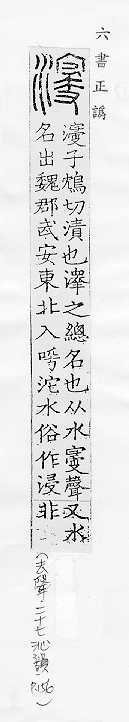 六書正譌
濅
濅子鴆切漬也澤之總名也从水㝲聲又水
名出魏郡武安東北入呼沱水俗作浸非
(去聲·二十七沁韻 P.156)